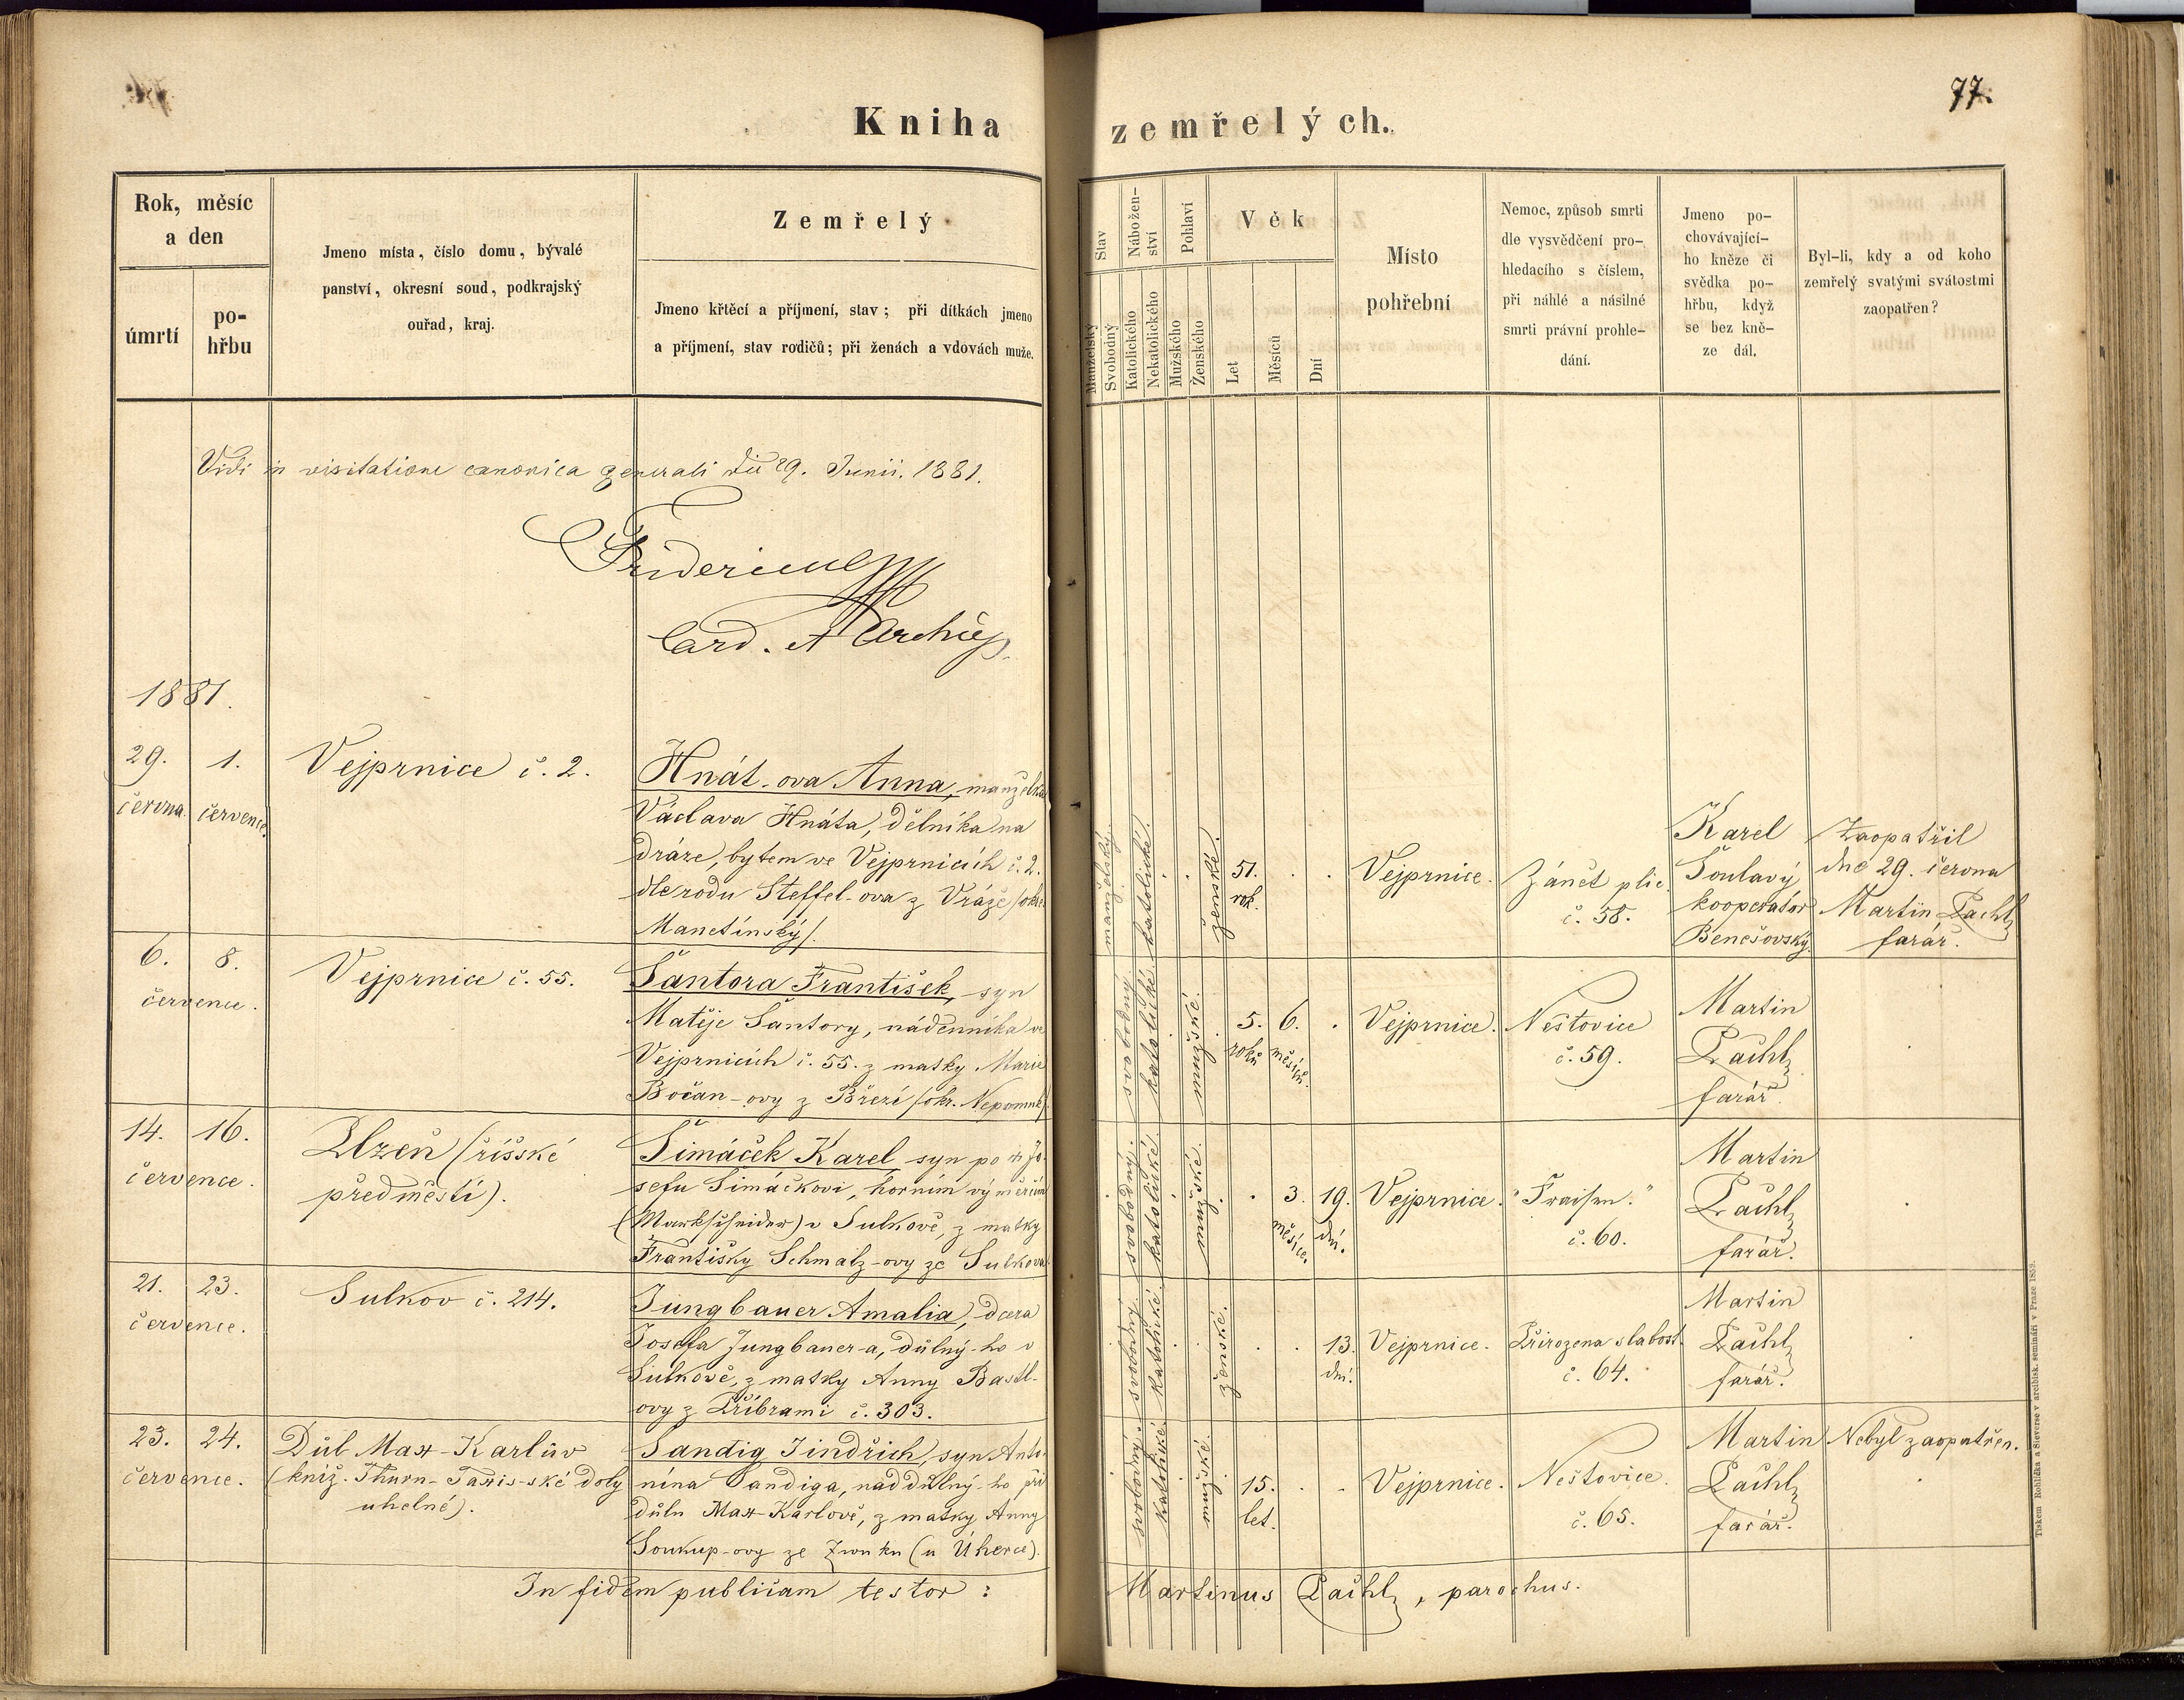 77.
Kniha zemřelých.
Rok, měsíc
a den
úmrtí
po-
hřbu
Jmeno místa, číslo domu, bývalé
panství, okresní soud, podkrajský
ouřad, kraj.
Zemřelý
Jmeno křtěcí a příjmení, stav; při dítkách jmeno
a příjmení, stav rodičů; při ženách a vdovách muže.
Stav
Manželský
Svobodný
Nábožen-
ství
Katolického
Nekatolického
Pohlaví
Mužského
Ženského
Věk
Let
Měsíců
Dní
Místo
pohřební
Nemoc, způsob smrti
dle vysvědčení pro-
hledacího s číslem,
při náhlé a násilné
smrti právní prohle-
dání.
Jmeno po-
chovávající-
ho kněze či
svědka po-
hřbu, když
se bez kně-
ze dál.
Byl-li, kdy a od koho
zemřelý svatými svátostmi
zaopatřen?
Vidi in visitatione canonica generali die 29. Junii. 1881.
Fridericus
Card. et Archiep.
1881.
29.
června.
1.
července.
Vejprnice č. 2.
Hnát-ova Anna, manželka
Václava Hnáta, dělníka na
dráze, bytem ve Vejprnicích č. 2.
dle rodu Steffel-ova z Vráže /okr.
Manetínský/.
manželský.
katolické.
ženské.
51.
rok.
Vejprnice.
Zánět plic.
č. 58.
Karel
Soulavý
kooperátor
Benešovský.
Zaopatřil
dne 29. června
Martin Pachl,
farář.
6.
8.
července.
Vejprnice č. 55.
Šantora František, syn
Matěje Šantory, nádenníka ve
Vejprnicích č. 55. z matky Marie
Bočan-ovy z Březí /okr. Nepomuk/.
svobodný.
katolické.
mužské.
5.
roků
6.
měsíců.
Vejprnice.
Neštovice
č. 59.
Martin
Pachl,
farář.
14.
16.
července.
Plzeň (říšské
předměstí).
Šimáček Karel, syn po Jo-
sefu Šimáčkovi, horním výměrčím
(Markscheider) v Sulkově, z matky
Františky Schmalz-ovy ze Sulkova.
svobodný.
katolické.
mužské.
3.
měsíce.
19.
dní.
Vejprnice.
"Fraisen."
č. 60.
Martin
Pachl,
farář.
21.
23.
července.
Sulkov č. 214.
Jungbauer Amalia, dcera
Josefa Jungbauer-a, důlný-ho v
Sulkově, z matky Anny Bastl-
ovy z Příbrami č. 303.
svobodný.
katolické.
ženské.
13.
dní.
Vejprnice.
Přirozena slabost.
č. 64.
Martin
Pachl,
farář.
23.
24.
července.
Důl Max-Karlův
(kníž. Thurn-Taxis-ské doly
uhelné).
Sandig Jindřich, syn Anto-
nína Sandiga, naddůlný-ho při
důlu Max-Karlově, z matky Anny
Soukup-ovy ze Zwuku (u Úherce).
svobodný.
katolické.
mužské.
15.
let.
Vejprnice.
Neštovice.
č. 65.
Martin
Pachl,
farář.
Nebyl zaopatřen.
In fidem publicam testor: Martinus Pachl, parochus.
Tiskem Rohlíčka a Sieverse v arcibisk. semináři v Praze 1859.